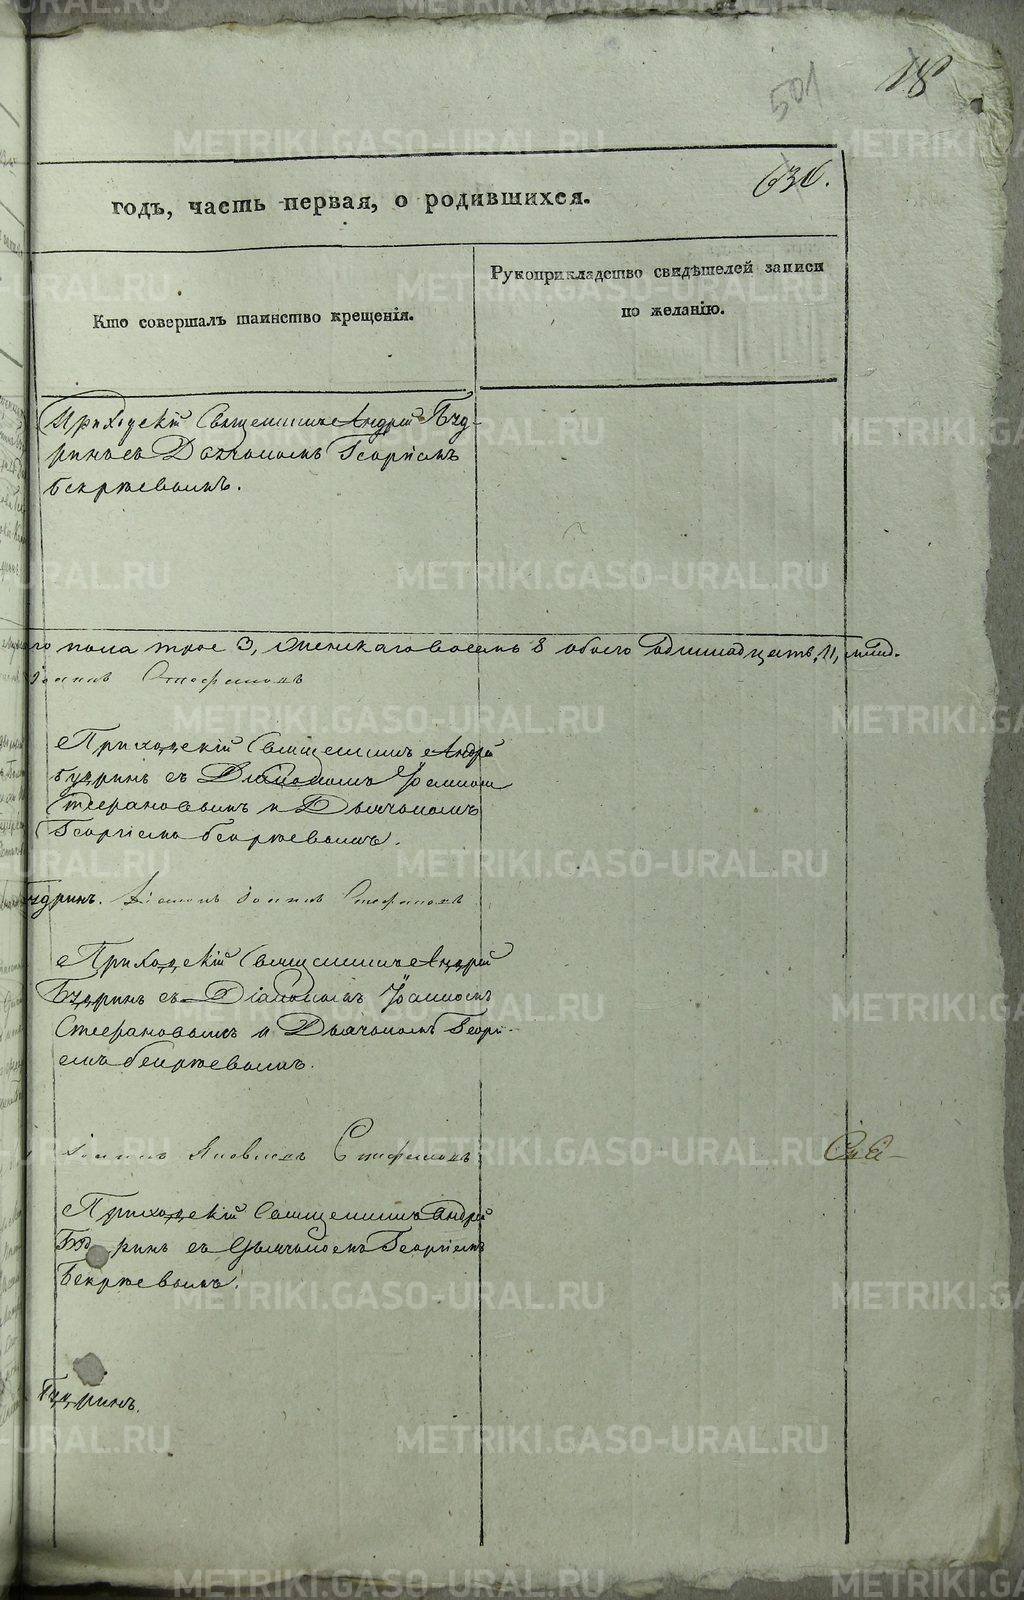 501
18
годъ, часть первая, о родившихся.
Кто совершалъ таинство крещенія.
Рукоприкладство свидѣтелей записи
по желанію.
Приходскій Священникъ Андрей Буд-
ринъ съ Дьячкомъ Георгіемъ
го пола трое 3, женскаго восемь 8 обоего одиннадцать, 11, млад.
Іоаннъ Стефановъ
Приходскій Священникъ Андрей
Будринъ съ Діакономъ Іоанномъ
Стефановымъ и Дьячкомъ
Георгіемъ
Будринъ. Діаконъ Іоаннъ Стефановъ
Приходскій Священникъ Андрей
Будринъ съ Діакономъ Іоанномъ
Стефановымъ и Дьячкомъ Георгі-
емъ
Іоаннъ Яковлевъ Стефановъ
Приходскій Священникъ Андрей
Будринъ съ Дьячкомъ Георгіемъ
Будринъ.
METRIKI.GASO-URAL.RU